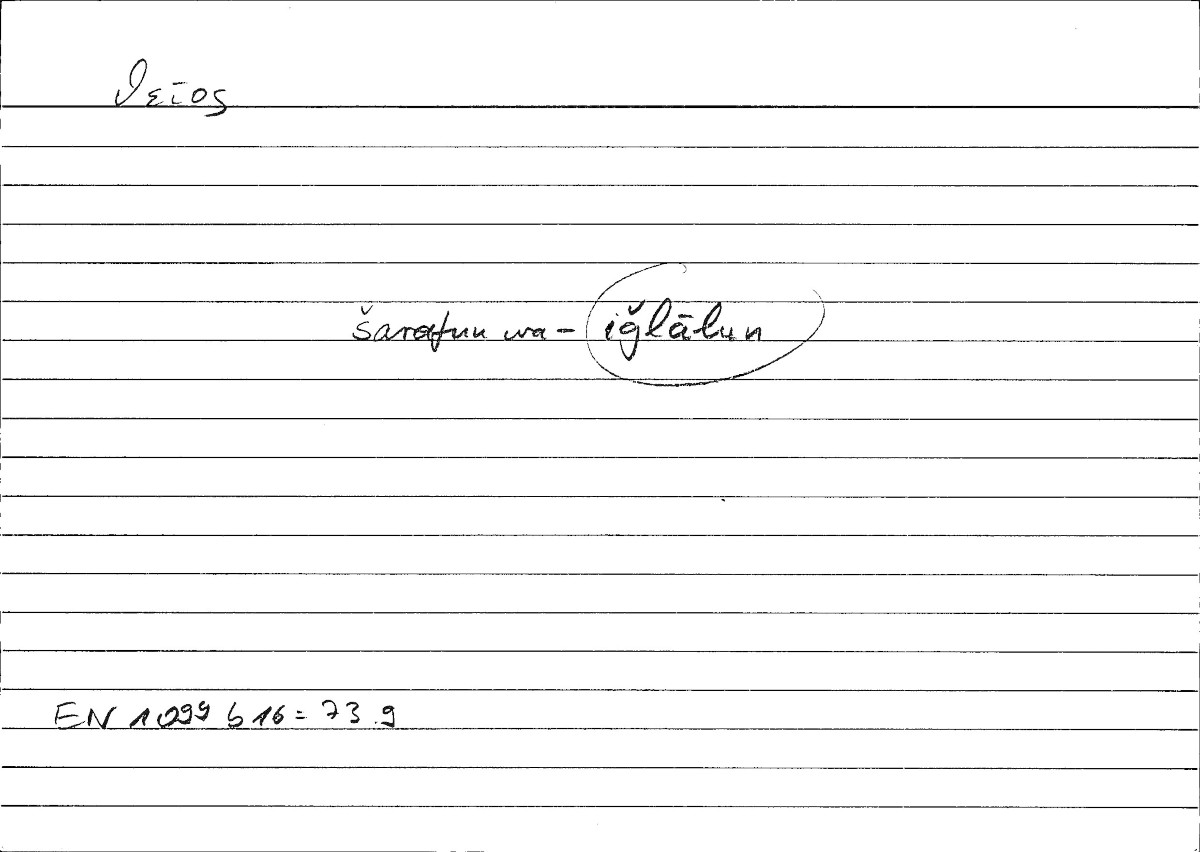 θεῖος
šarafun wa - iǧlālun
EN 1099 b 16 = 73.9